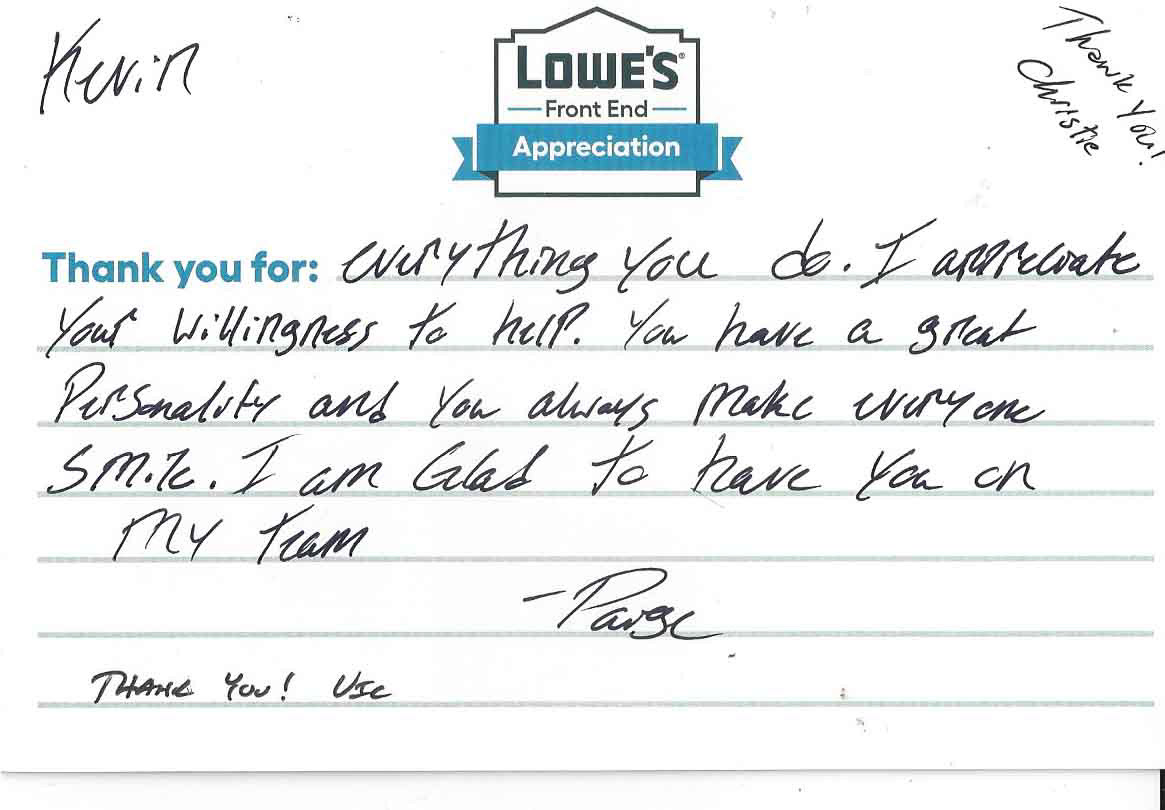 Kevin
LOWE'S®
Front End
Appreciation
Thank You!
Christie
Thank you for: everything you do. I appreciate
your willingness to help. You have a great
Personality and you always make everyone
smile. I am Glad to have you on
my team
- Paige
THANK YOU! VIC